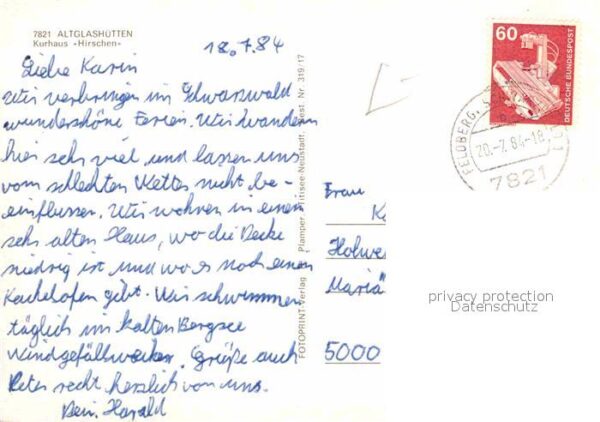 7821 ALTGLASHÜTTEN
Kurhaus »Hirschen«
18.7.84
Liebe Karin
Wir verbringen im Schwarzwald
wunderschöne Ferien. Wir wandern
hier sehr viel und lassen uns
vom schlechten Wetter nicht be-
einflussen. Wir wohnen in einem
sehr alten Haus, wo die Decke
niedrig ist und wo es noch einen
Kachelofen gibt. Wir schwimmen
täglich im kalten Bergsee
Grüße auch
Peter recht herzlich von uns.
Dein Harald
FOTOPRINT-Verlag Plamper, Titisee-Neustadt, Best. Nr. 319/17
60
DEUTSCHE BUNDESPOST
FELDBERG
20.-7.84-18
7821
Frau
K
Holwe
Mariä
5000
privacy protection
Datenschutz